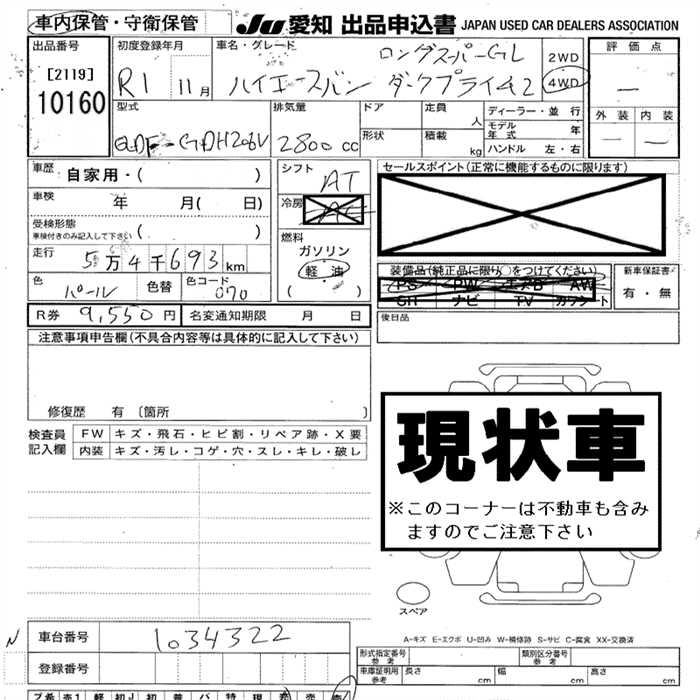 車内保管・守衛保管
JU 愛知 出品申込書 JAPAN USED CAR DEALERS ASSOCIATION
出品番号
[2119]
10160
初度登録年月
R1 11月
車名・グレード
ロングスーパーGL
ハイエースバン ダークプライム2
2WD
4WD
評価点
—
外装 内装
— —
型式
QDF-GDH206V
排気量
2800cc
ドア
形状
定員
人
積載
kg
ディーラー・並行
モデル年式 年
ハンドル 左・右
車歴 自家用・( )
車検 年 月( 日)
受検形態
車検付きのみ記入して下さい ( )
走行 5万4千693km
色 パール 色替 色コード 070
シフト AT
冷房 AC
燃料
ガソリン
軽油
( )
セールスポイント(正常に機能するものに限ります)
装備品(純正品に限り○をつけてください)
PS PW エアB AW
SR ナビ TV カワシート
新車保証書
有・無
R券 9,550円 名変通知期限 月 日
後日品
注意事項申告欄(不具合内容等は具体的に記入して下さい)
修復歴 有 [箇所 ]
検査員記入欄
FW キズ・飛石・ヒビ割・リペア跡・X要
内装 キズ・汚レ・コゲ・穴・スレ・キレ・破レ
現状車
※このコーナーは不動車も含み
ますのでご注意下さい
スペア
A-キズ E-エクボ U-凹み W-補修跡 S-サビ C-腐食 XX-交換済
N
車台番号 1034322
登録番号
形式指定番号 参考
類別区分番号 参考
車庫証明用 参考 長さ cm 幅 cm 高さ cm